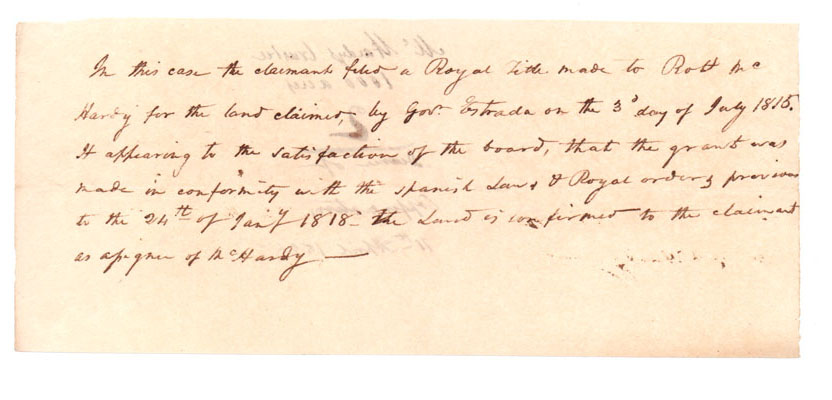 In this case the claimants filed a Royal Title made to Robt Mc
Hardy for the land claimed, by Govr. Estrada on the 3d day of July 1815.
It appearing to the satisfaction of the board, that the grant was
made in conformity with the spanish Laws & Royal orders previous
to the 24th of Jany 1818 - the Land is confirmed to the claimant
as assignee of McHardy —